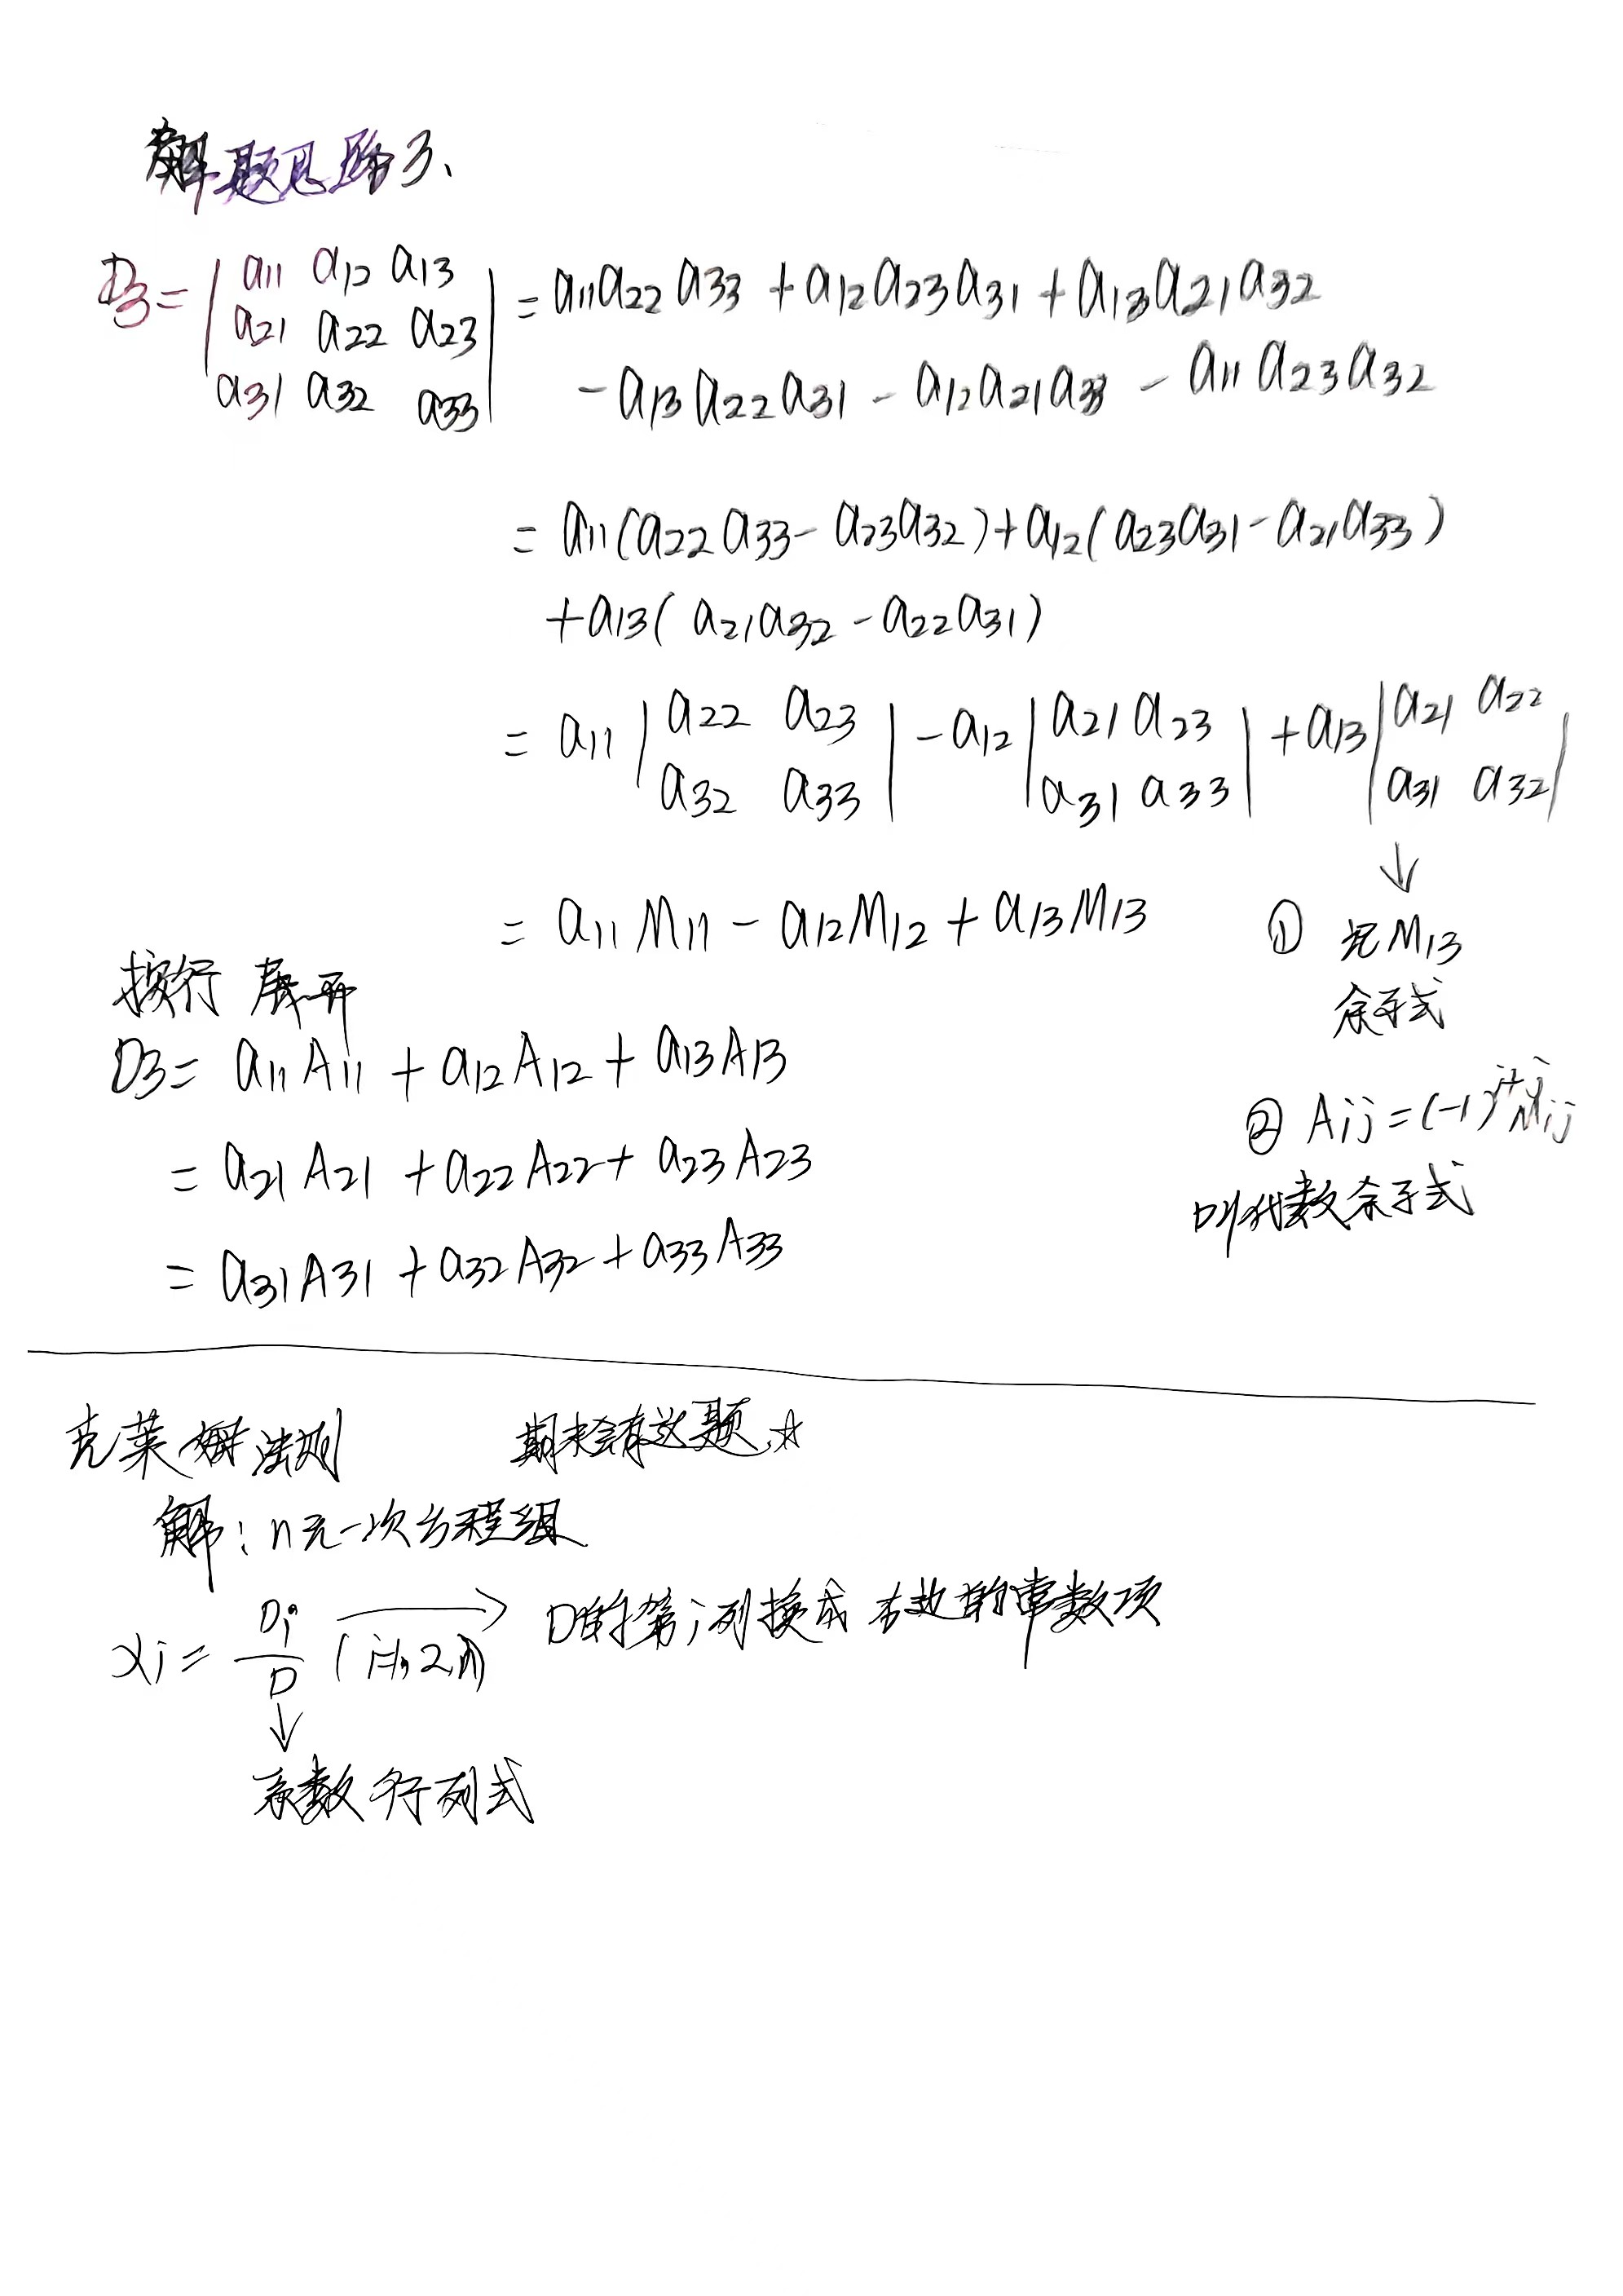 解题思路3、
D3= | a11 a12 a13 | = a11a22a33 + a12a23a31 + a13a21a32
a21 a22 a23
a31 a32 a33
- a13a22a31 - a12a21a33 - a11a23a32
= a11(a22a33 - a23a32) + a12(a23a31 - a21a33)
+a13( a21a32 - a22a31)
= a11 | a22 a23 | - a12 | a21 a23 | + a13 | a21 a22 |
a32 a33 a31 a33 a31 a32
↓
= a11M11 - a12M12 + a13M13
① 记M13
余子式
② Aij=(-1)^i+j Mij
叫代数余子式
按行展开
D3= a11A11 + a12A12 + a13A13
= a21A21 + a22A22 + a23A23
= a31A31 + a32A32 + a33A33
克莱姆法则 期末会有这题☆
解:n元一次方程组
xi = Di/D (i=1,2,n) → D的第i列换成右边的常数项
↓
系数行列式